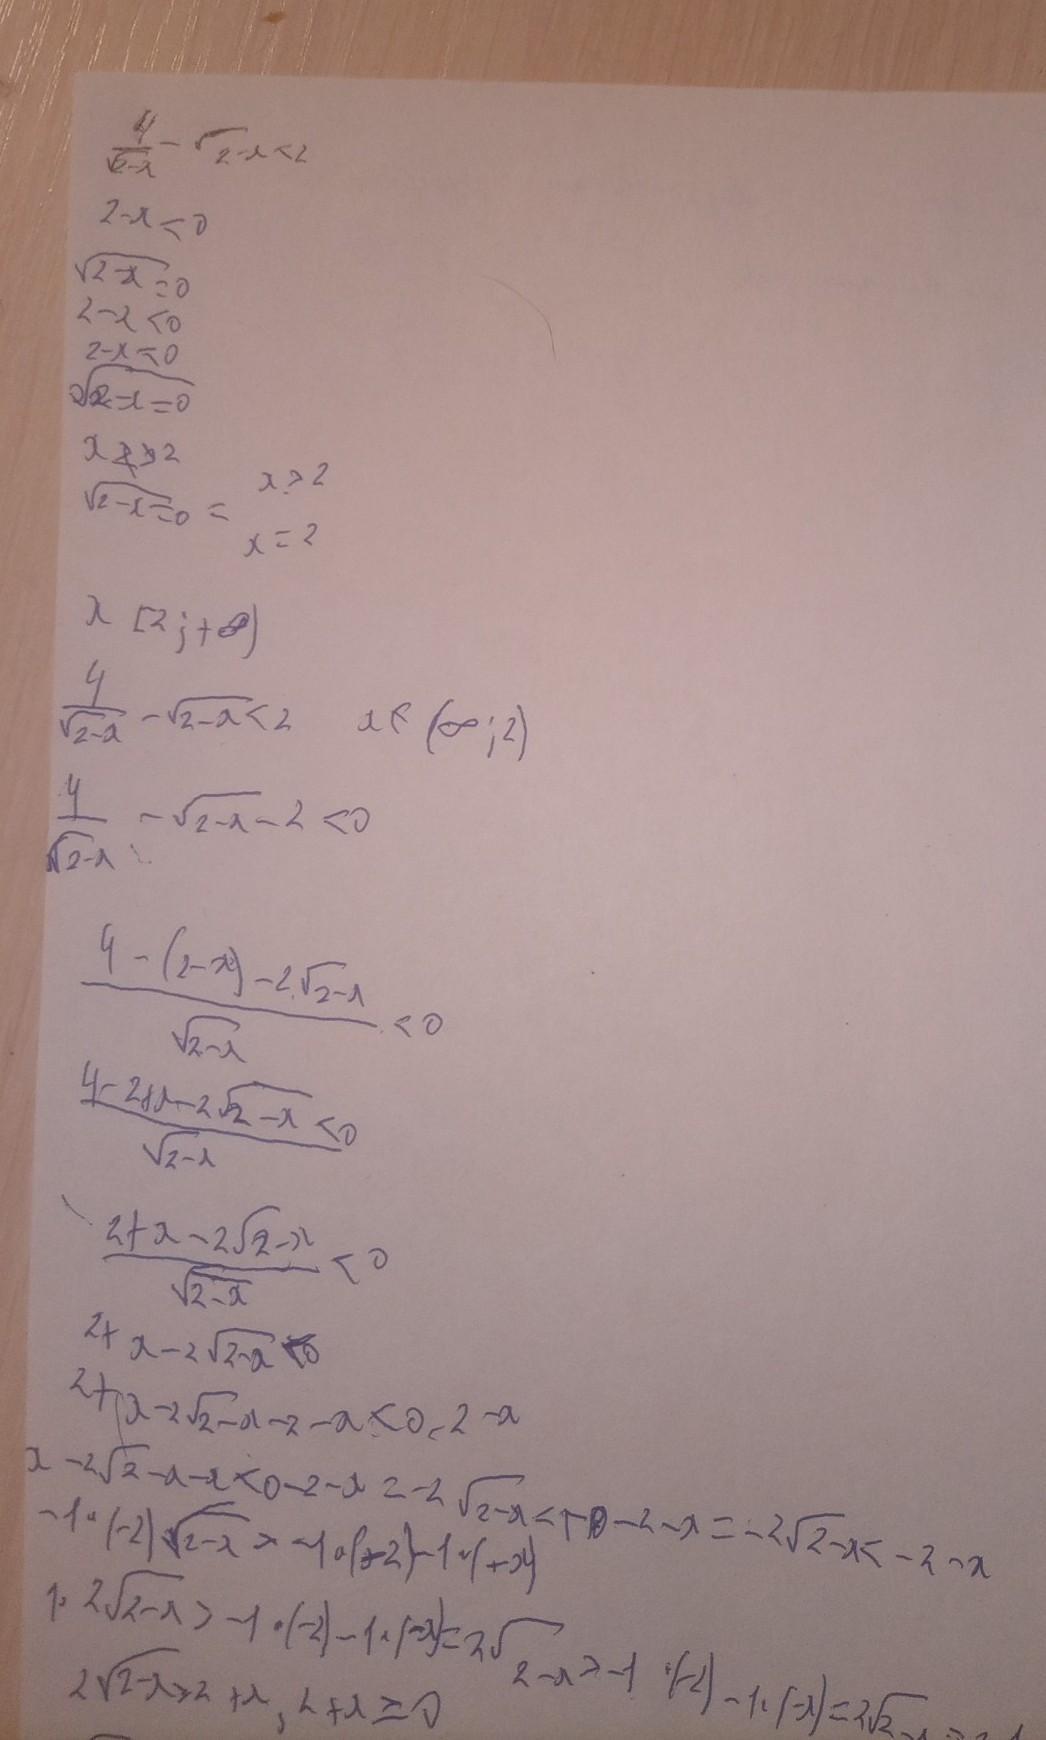 4/√2-x - √2-x < 2
2-x < 0
√2-x = 0
2-x < 0
2-x < 0
√2-x = 0
x > 2
√2-x = 0 = x > 2
x = 2
x [2; +∞)
4/√2-x - √2-x < 2 x ∈ (∞; 2)
4/√2-x - √2-x - 2 < 0
4 - (2-x) - 2√2-x / √2-x < 0
4 - 2 + x - 2√2-x < 0 / √2-x
2 + x - 2√2-x / √2-x < 0
2 + x - 2√2-x < 0
2 + x - 2√2-x - 2 - x < 0 - 2 - x
x - 2√2-x - x < 0 - 2 - x = -2√2-x < 0 - 2 - x = -2√2-x < -2 - x
-1·(-2)√2-x > -1·(-2) - 1·(+x)
1·2√2-x > -1·(-2) - 1·(-x) = 2√2-x > -1·(-2) - 1·(-x) = 2√2-x
2√2-x > 2 + x, 2 + x ≥ 0